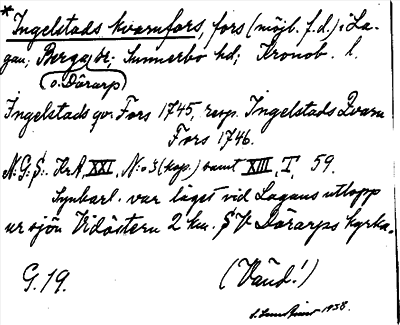 * Ingelstads kvarnfors, fors (möjl. f.d.) i La-
gan; Berga sn; Sunnerbo hd; Kronob. l.
o. Dörarp
Ingelstads qv. Fors 1745, resp. Ingelstads Qvarn
Fors 1746.
N:G:S:. Kr A, XXI, N:o 3 (kop.) samt XIII, T, 59.
Synbarl. var läget vid Lagans utlopp
ur sjön Vidöstern 2 km. SV Dörarps kyrka.
G. 19. (Vaud!)
1938.